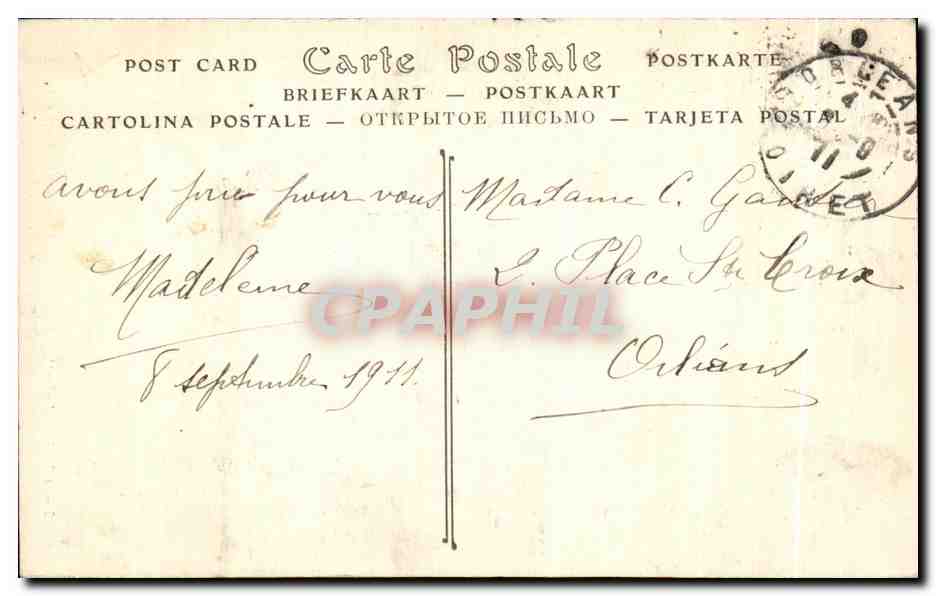 POST CARD Carte Postale POSTKARTE
BRIEFKAART — POSTKAART
CARTOLINA POSTALE — ОТКРЫТОЕ ПИСЬМО — TARJETA POSTAL
ORLEANS
LOIRET
avons prié pour vous
Madeleine
8 septembre 1911.
Madame C.
2. Place Ste Croix
Orléans
CPAPHIL